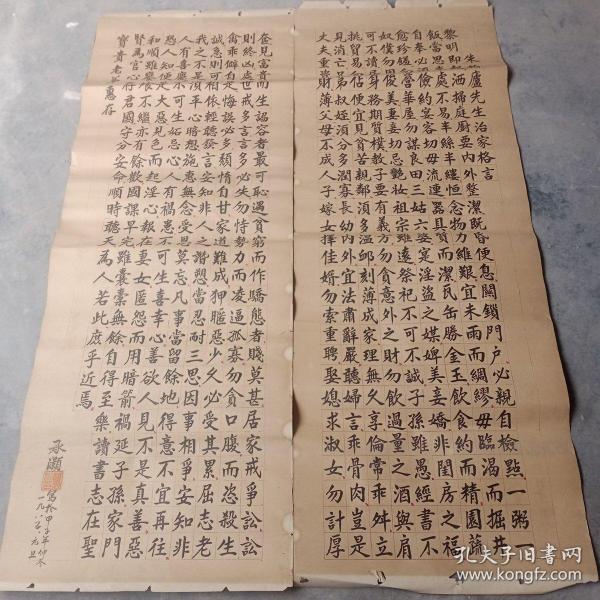 盧先生治家格言
黎明即起洒掃庭廚要內外整潔既昏便息關鎖門戶必親自檢點一粥一
飯當思來處不易半絲半縷恒念物力維艱宜未雨而綢繆毋臨渴而掘井
自奉必須儉約宴客切毋流連器具質而潔瓦缶勝金玉飲食約而精園蔬
愈珍饈勿營華屋勿謀良田三姑六婆實淫盜之媒婢美妾嬌非閨房之福
奴僕勿用俊美妻妾切忌艷妝祖宗雖遠祭祀不可不誠子孫雖愚經書不
可不讀居身務期質樸教子要有義方勿貪意外之財勿飲過量之酒與肩
挑貿易勿佔便宜見貧苦親鄰須多溫恤刻薄成家理無久享倫常乖舛立
見消亡兄弟叔姪須分多潤寡長幼內外宜法肅辭嚴聽婦言乖骨肉豈是
丈夫重財薄父母不成人子嫁女擇佳婿勿索重聘娶媳求淑女勿計厚
奩見富貴而生諂容者最可恥遇貧窮而作驕態者賤莫甚居家戒爭訟訟
則終凶處世戒多言言多必失勿恃勢力而凌逼孤寡勿貪口腹而恣殺生
禽乖僻自是悔誤必多頹惰自甘家道難成狎暱惡少久必受其累屈志老
誠急則可相依輕聽發言安知非人之譖愬當忍耐三思因事相爭安知非
我之不是須平心暗想施惠無念受恩莫忘凡事當留餘地得意不宜再往
人有喜慶不可生妬忌心人有禍患不可生喜幸心善欲人見不是真善惡
恐人知便是大惡見色而起淫心報在妻女匿怨而用暗箭禍延子孫家門
和順雖饔飧不繼亦有餘歡國課早完雖囊橐無餘自得至樂讀書志在聖
賢為官心存君國守分安命順時聽天為人若此庶乎近焉
寶貴老惠存
承灝
寫於甲子年仲冬
一九八五元旦
孔夫子旧书网
www.kongfz.com